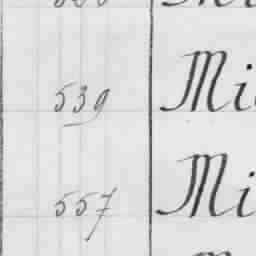 539 Mi
557 Mi